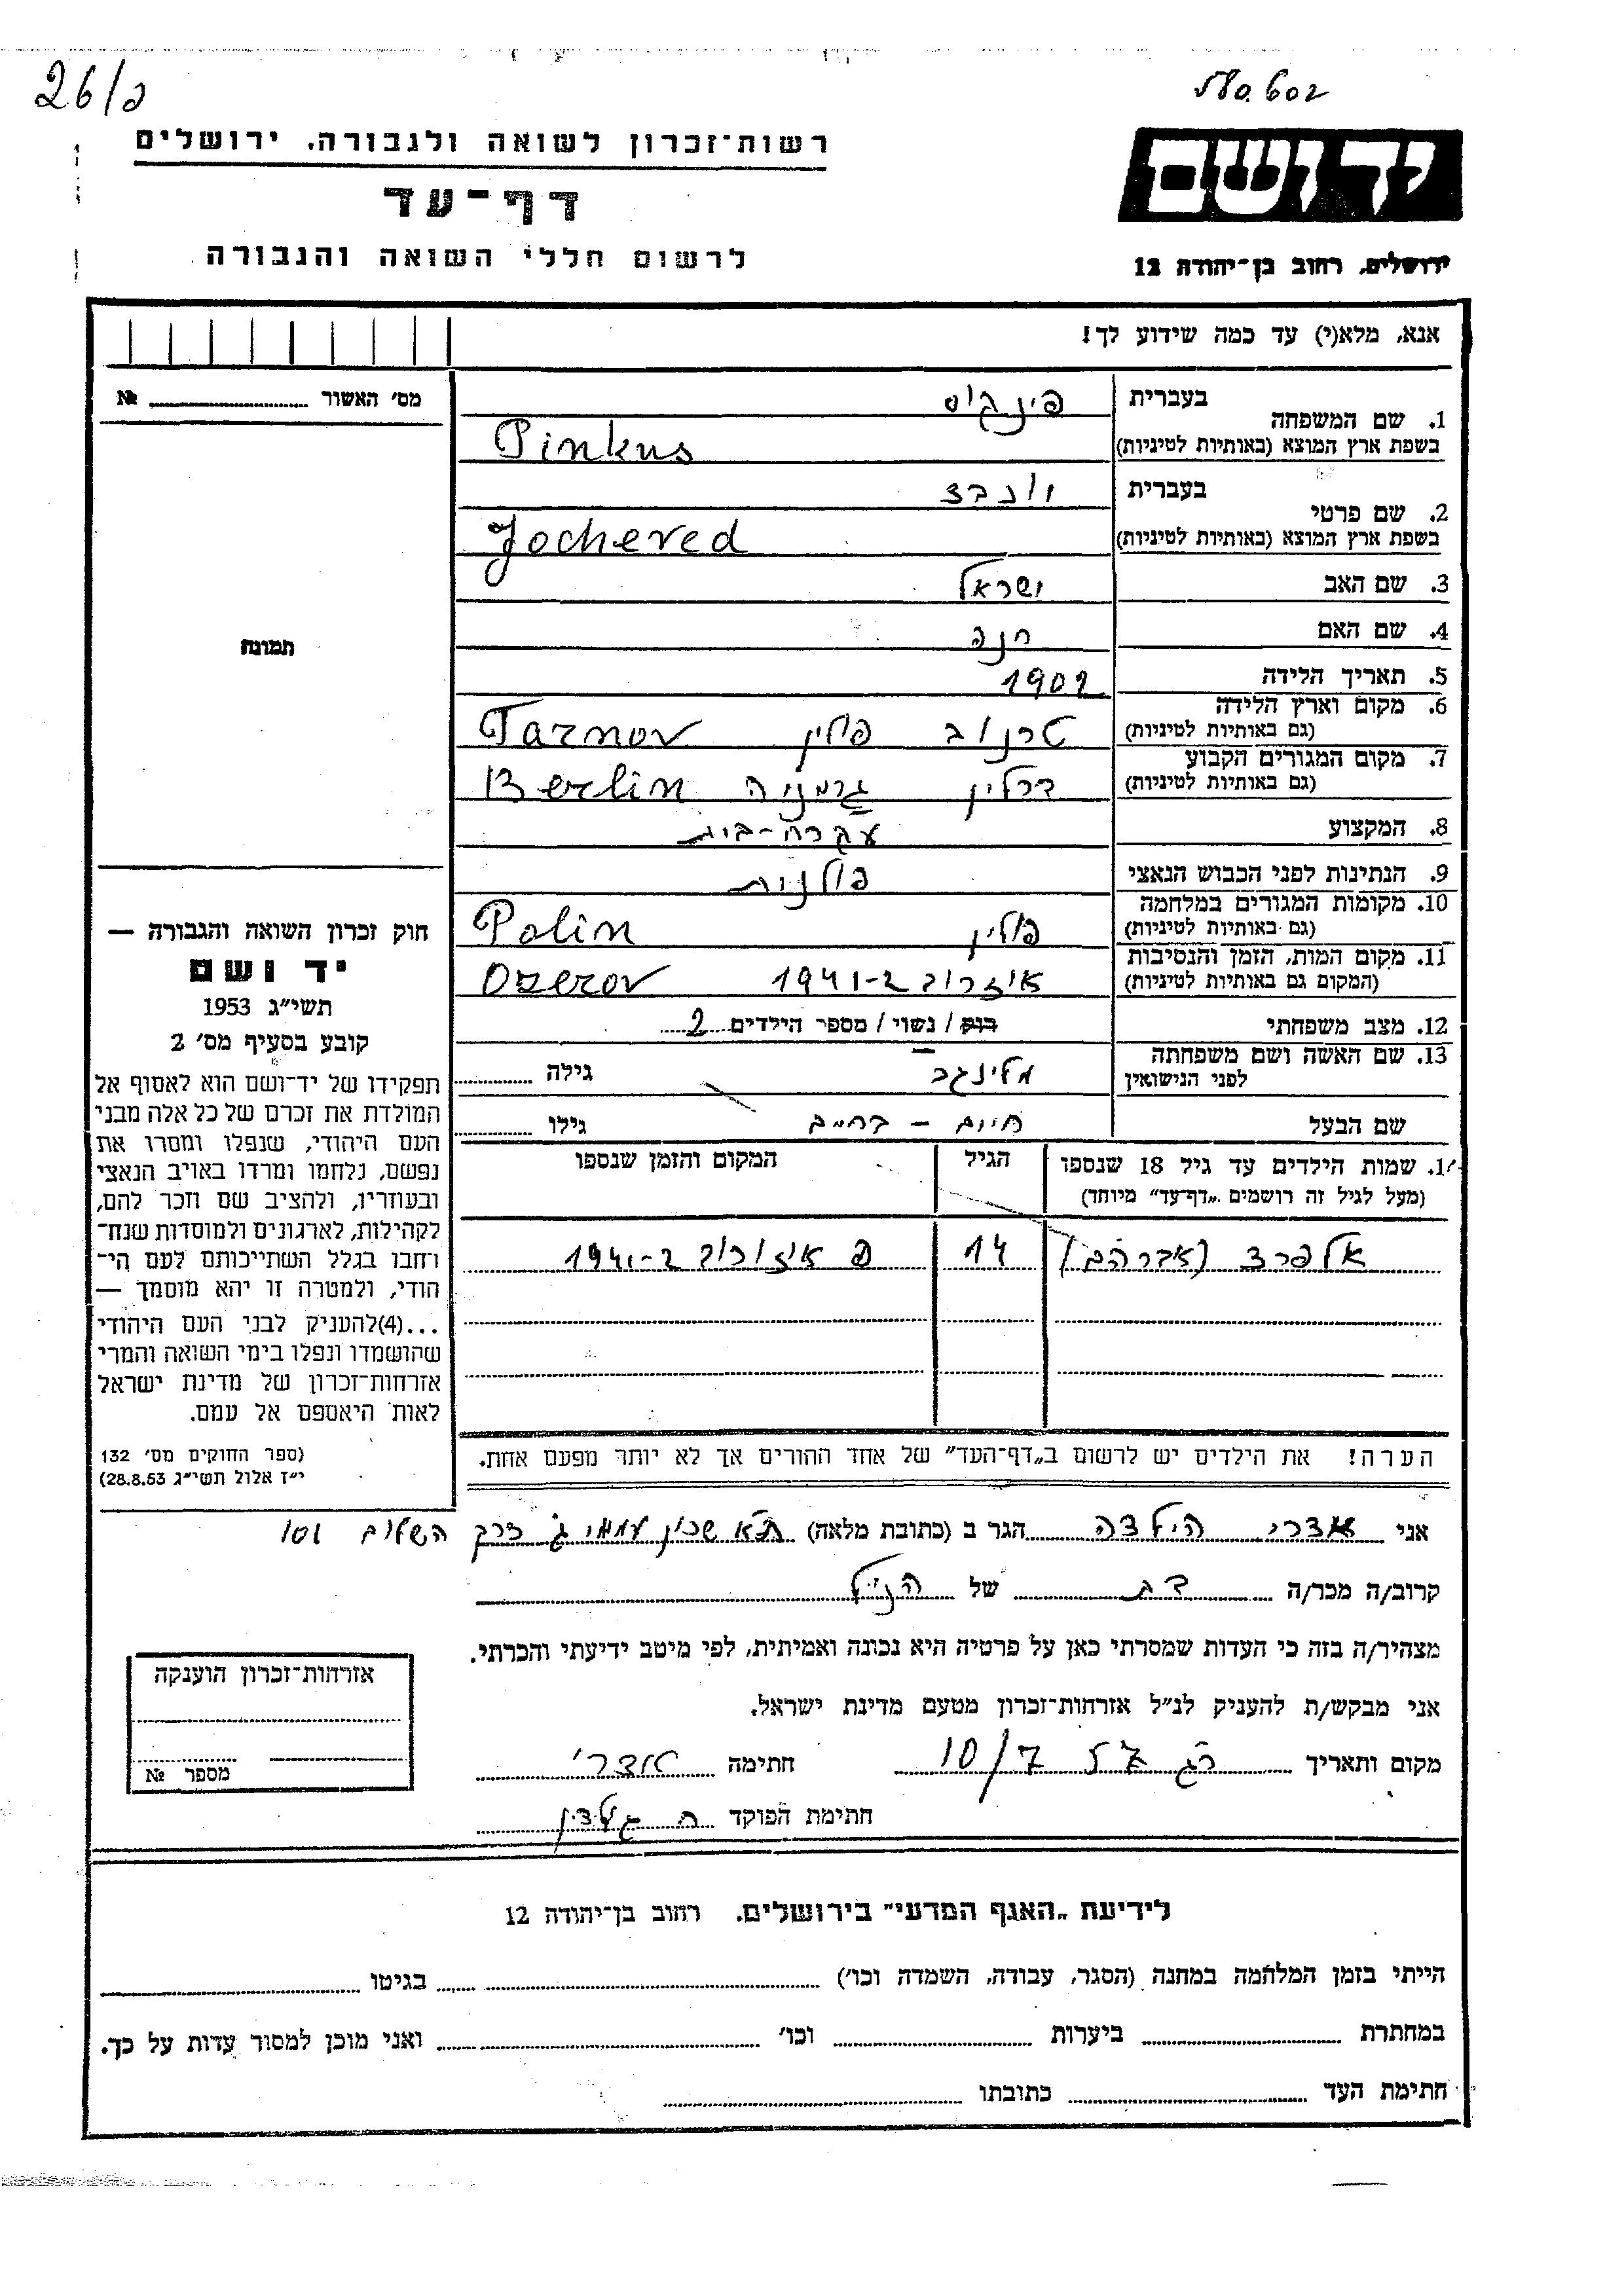 26/פ
580.602
רשות־זכרון לשואה ולגבורה, ירושלים
דף־עד
לרשום חללי השואה והגבורה
יד ושם
ירושלים, רחוב בן־יהודה 12
אנא, מלא(י) עד כמה שידוע לך!
מס' האשור № 
1. שם המשפחה
בעברית פינקוס
בשפת ארץ המוצא (באותיות לטיניות) Pinkus
2. שם פרטי
בעברית יוכבד
בשפת ארץ המוצא (באותיות לטיניות) Jochered
3. שם האב ישראל
4. שם האם חנה
5. תאריך הלידה 1902
6. מקום וארץ הלידה
(גם באותיות לטיניות) טרנוב פולין Tarnov
7. מקום המגורים הקבוע
(גם באותיות לטיניות) ברלין גרמניה Berlin
8. המקצוע עקרת-בית
9. הנתינות לפני הכבוש הנאצי פולנית
10. מקומות המגורים במלחמה
(גם באותיות לטיניות) פולין Polin
11. מקום המות, הזמן והנסיבות
(המקום גם באותיות לטיניות) אוזרוב 1941-2 Ozerov
12. מצב משפחתי רוק / נשוי / מספר הילדים 2
13. שם האשה ושם משפחתה
לפני הנישואין גילה
שם הבעל חיים - גילו
תמונה
חוק זכרון השואה והגבורה —
יד ושם
תשי"ג 1953
קובע בסעיף מס' 2
תפקידו של יד־ושם הוא לאסוף אל
המולדת את זכרם של כל אלה מבני
העם היהודי, שנפלו ומסרו את
נפשם, נלחמו ומרדו באויב הנאצי
ובעוזריו, ולהציב שם וזכר להם,
לקהילות, לארגונים ולמוסדות שנח־
רבו בגלל השתייכותם לעם הי־
הודי, ולמטרה זו יהא מוסמך —
...(4)להעניק לבני העם היהודי
שהושמדו ונפלו בימי השואה והמרי
אזרחות־זכרון של מדינת ישראל
לאות היאספם אל עמם.
(ספר החוקים מס' 132
י"ז אלול תשי"ג 28.8.53)
1. שמות הילדים עד גיל 18 שנספו
(מעל לגיל זה רושמים "דף־עד" מיוחד)
הגיל
המקום והזמן שנספו
אלפרד (אברהם) 14 אוזרוב 1941-2
הערה! את הילדים יש לרשום ב"דף־העד" של אחד ההורים אך לא יותר מפעם אחת.
אני אדרי הילדה הגר ב (כתובת מלאה) ת"א שכון עממי ג' דרך השלום 101
קרוב/ה מכר/ה בת של הנ"ל
מצהיר/ה בזה כי העדות שמסרתי כאן על פרטיה היא נכונה ואמיתית, לפי מיטב ידיעתי והכרתי.
אני מבקש/ת להעניק לנ"ל אזרחות־זכרון מטעם מדינת ישראל.
מקום ותאריך 10/7 חתימה אדרי
חתימת הפוקד
אזרחות־זכרון הוענקה
מספר №
לידיעת "האגף המדעי" בירושלים. רחוב בן־יהודה 12
הייתי בזמן המלחמה במחנה (הסגר, עבודה, השמדה וכו') בגיטו
במחתרת ביערות וכו' ואני מוכן למסור עדות על כך.
חתימת העד כתובתו